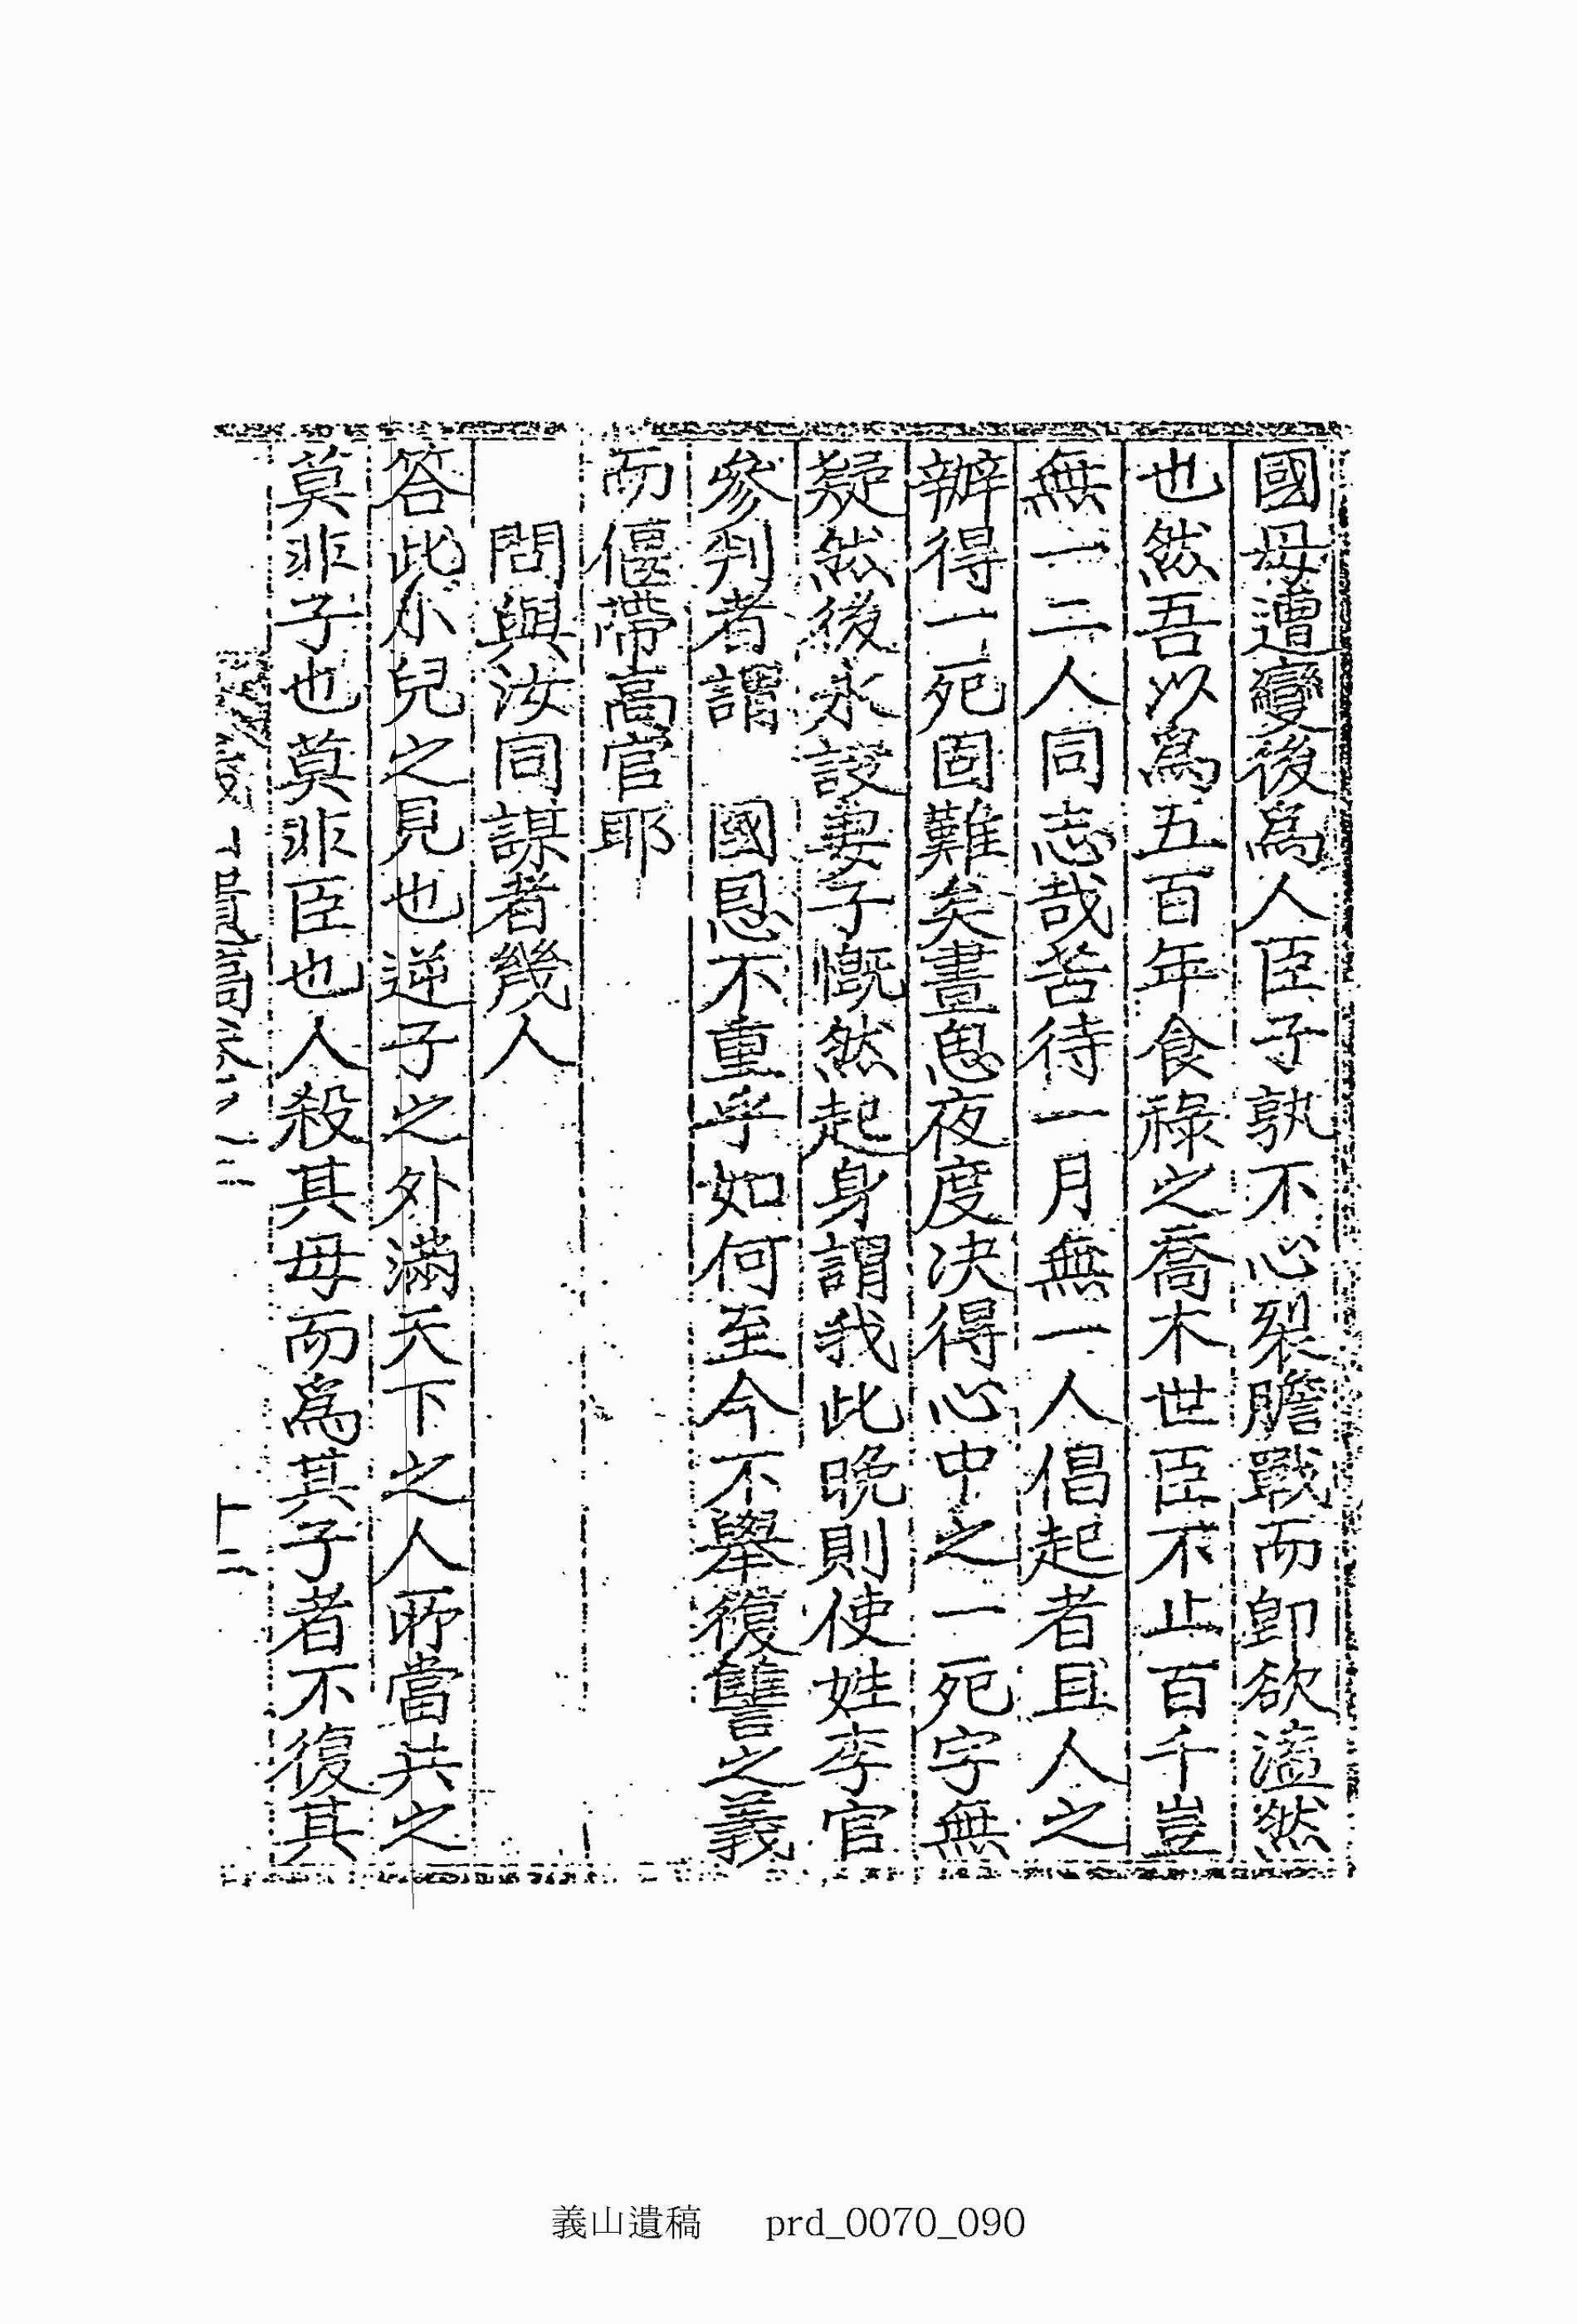 國母遭變後爲人臣子孰不心裂膽戰而卽欲溘然
也然吾以爲五百年食祿之喬木世臣不止百千豈
無一二人同志哉苦待一月無一人倡起者且人之
辦得一死固難矣晝思夜度决得心中之一死字無
疑然後永設妻子慨然起身謂我此晚則使姓李官
參判者謂　國恩不重乎如何至今不擧復讐之義
而偃帶高官耶
問與汝同謀者幾人
答此小兒之見也逆子之外滿天下之人所當共之
莫非子也莫非臣也人殺其母而爲其子者不復其
十二
義山遺稿 prd_0070_090